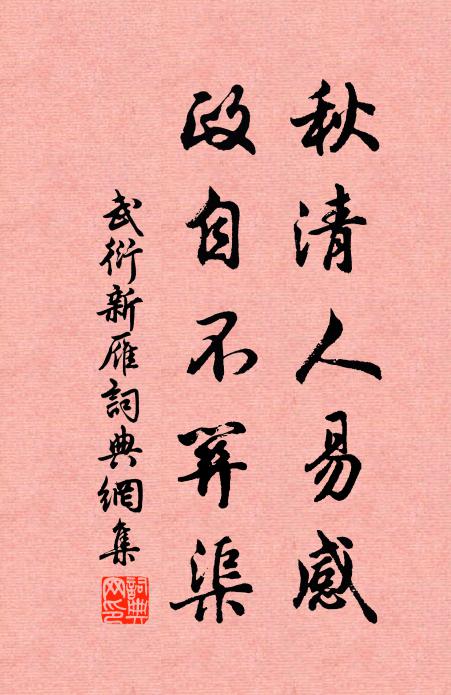 秋清人易感
政自不羿渠
武衍新雁詞典網集
詞典网印